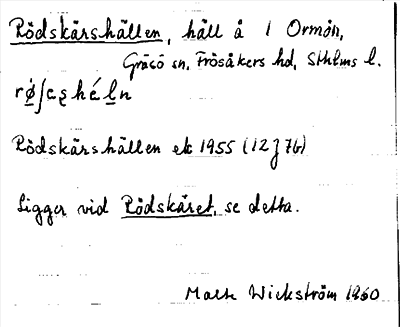 Rödskärshällen, häll å 1 Ormön,
Gräsö sn, Frösåkers hd, Sthlms l.
Rödskärshällen ek 1955 (12 J 7b)
Ligger vid Rödskäret, se detta.
Malte Wickström 1960